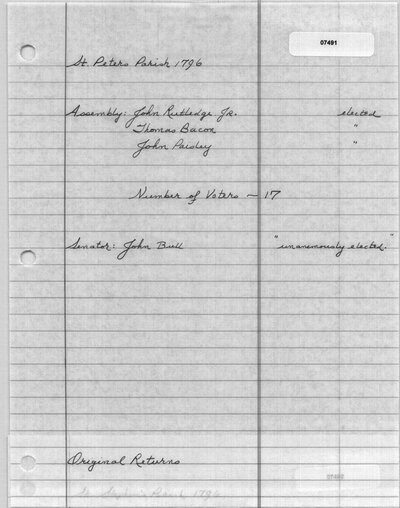 07491
St. Peters Parish 1796
Assembly: John Rutledge Jr. elected
Thomas Bacon "
John Paisley "
Number of Voters — 17
Senator: John Bull "unanemously elected."
Original Returns